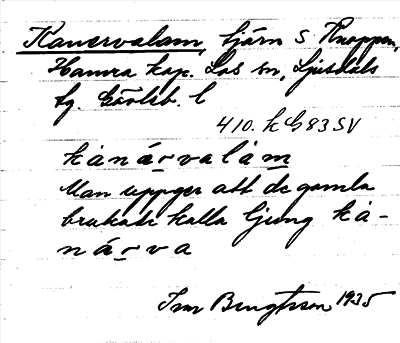 Kanervalam, tjärn S Knoppen,
Hamra kap. Los sn, Ljusdals
tg. Gävleb. l
410. h G83 SV
kȧnárvalȧm
Man uppger att de gamla
brukade kalla ljung kȧ-
nárva
Ivar Bengtsson 1935